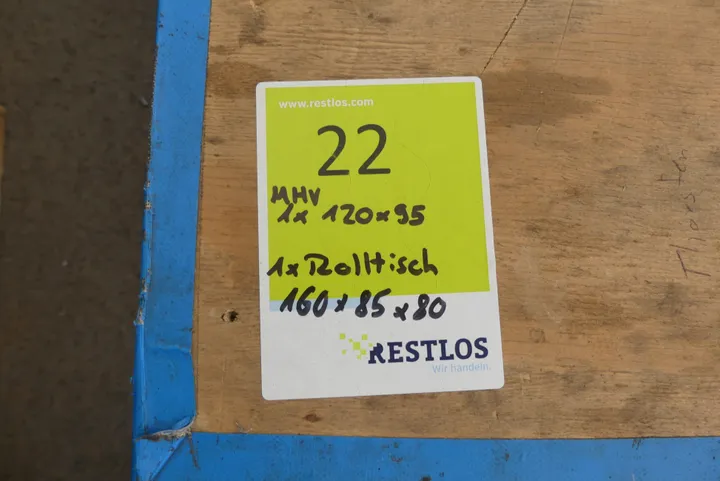 www.restlos.com
22
MHV
1x 120x95
1x Rolltisch
160x85x80
RESTLOS
Wir handeln.
Thorsten